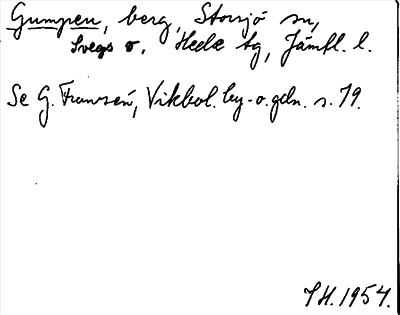 Gumpen, berg, Storsjö sn,
Svegs o. Hede tg, Jämtl. l.
Se G. Franzén, Vikbol. by- o. gdn. s. 79.
J H. 1954.